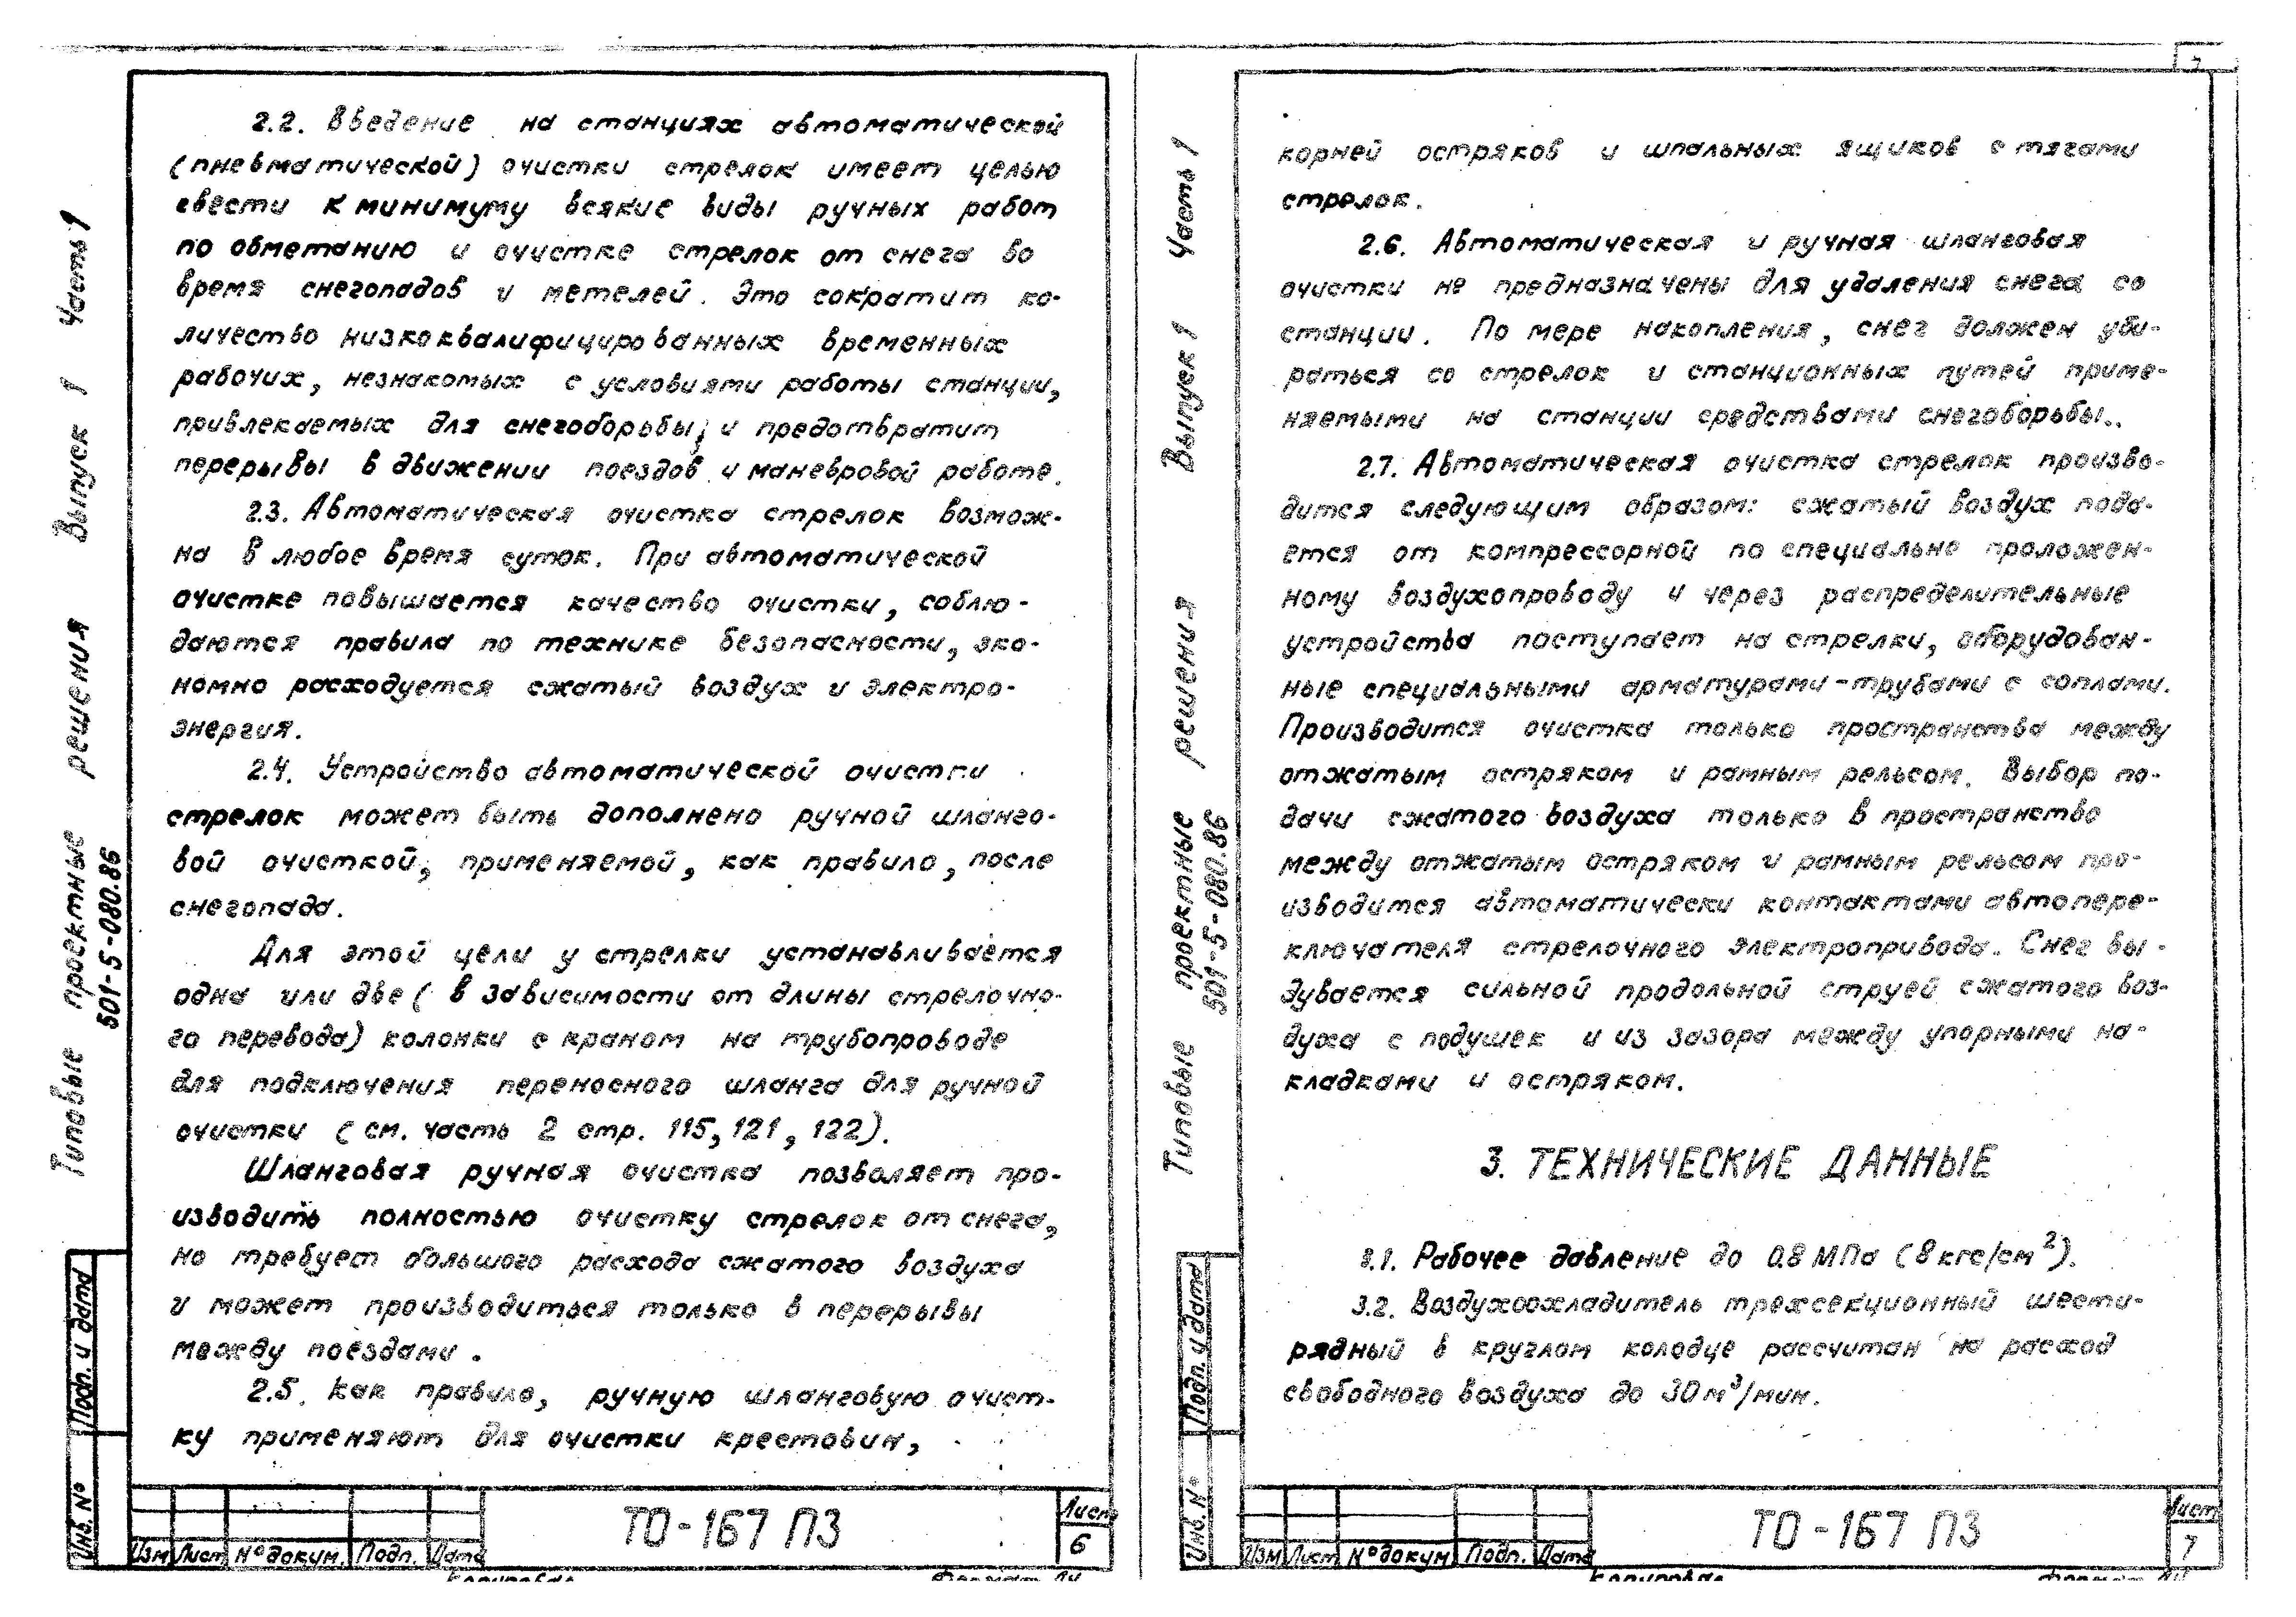 2.2. Введение на станциях автоматической
(пневматической) очистки стрелок имеет целью
свести к минимуму всякие виды ручных работ
по обметанию и очистке стрелок от снега во
время снегопадов и метелей. Это сократит ко-
личество низкоквалифицированных временных
рабочих, незнакомых с условиями работы станции,
привлекаемых для снегоборьбы, и предотвратит
перерывы в движении поездов и маневровой работе.
2.3. Автоматическая очистка стрелок возмож-
на в любое время суток. При автоматической
очистке повышается качество очистки, соблю-
даются правила по технике безопасности, эко-
номно расходуется сжатый воздух и электро-
энергия.
2.4. Устройство автоматической очистки
стрелок может быть дополнено ручной шланго-
вой очисткой, применяемой, как правило, после
снегопада.
Для этой цели у стрелки устанавливается
одна или две (в зависимости от длины стрелочно-
го перевода) колонки с краном на трубопроводе
для подключения переносного шланга для ручной
очистки (см. часть 2 стр. 115, 121, 122).
Шланговая ручная очистка позволяет про-
изводить полностью очистку стрелок от снега,
но требует большого расхода сжатого воздуха
и может производиться только в перерывы
между поездами.
2.5. Как правило, ручную шланговую очист-
ку применяют для очистки крестовин,
Типовые проектные решения Выпуск 1 Часть 1
501-5-080.86
Подп. и дата
Инв. №
Изм Лист № докум. Подп. Дата
ТО-167 ПЗ
Лист
6
Копировал
Формат А4
7
корней остряков и шпальных ящиков с тягами
стрелок.
2.6. Автоматическая и ручная шланговая
очистки не предназначены для удаления снега со
станции. По мере накопления, снег должен уби-
раться со стрелок и станционных путей приме-
няемыми на станции средствами снегоборьбы..
2.7. Автоматическая очистка стрелок произво-
дится следующим образом: сжатый воздух пода-
ется от компрессорной по специально проложен-
ному воздухопроводу и через распределительные
устройства поступает на стрелки, оборудован-
ные специальными арматурами-трубами с соплами.
Производится очистка только пространства между
отжатым остряком и рамным рельсом. Выбор по-
дачи сжатого воздуха только в пространство
между отжатым остряком и рамным рельсом про-
изводится автоматически контактами автопере-
ключателя стрелочного электропривода. Снег вы-
дувается сильной продольной струей сжатого воз-
духа с подушек и из зазора между упорными на-
кладками и остряком.
3. ТЕХНИЧЕСКИЕ ДАННЫЕ
3.1. Рабочее давление до 0.8 МПа (8 кгс/см²).
3.2. Воздухоохладитель трехсекционный шести-
рядный в круглом колодце рассчитан на расход
свободного воздуха до 30 м³/мин.
Типовые проектные решения Выпуск 1 Часть 1
501-5-080.86
Подп. и дата
Инв. №
Изм Лист № докум Подп. Дата
ТО-167 ПЗ
Лист
7
Копировал
Формат А4